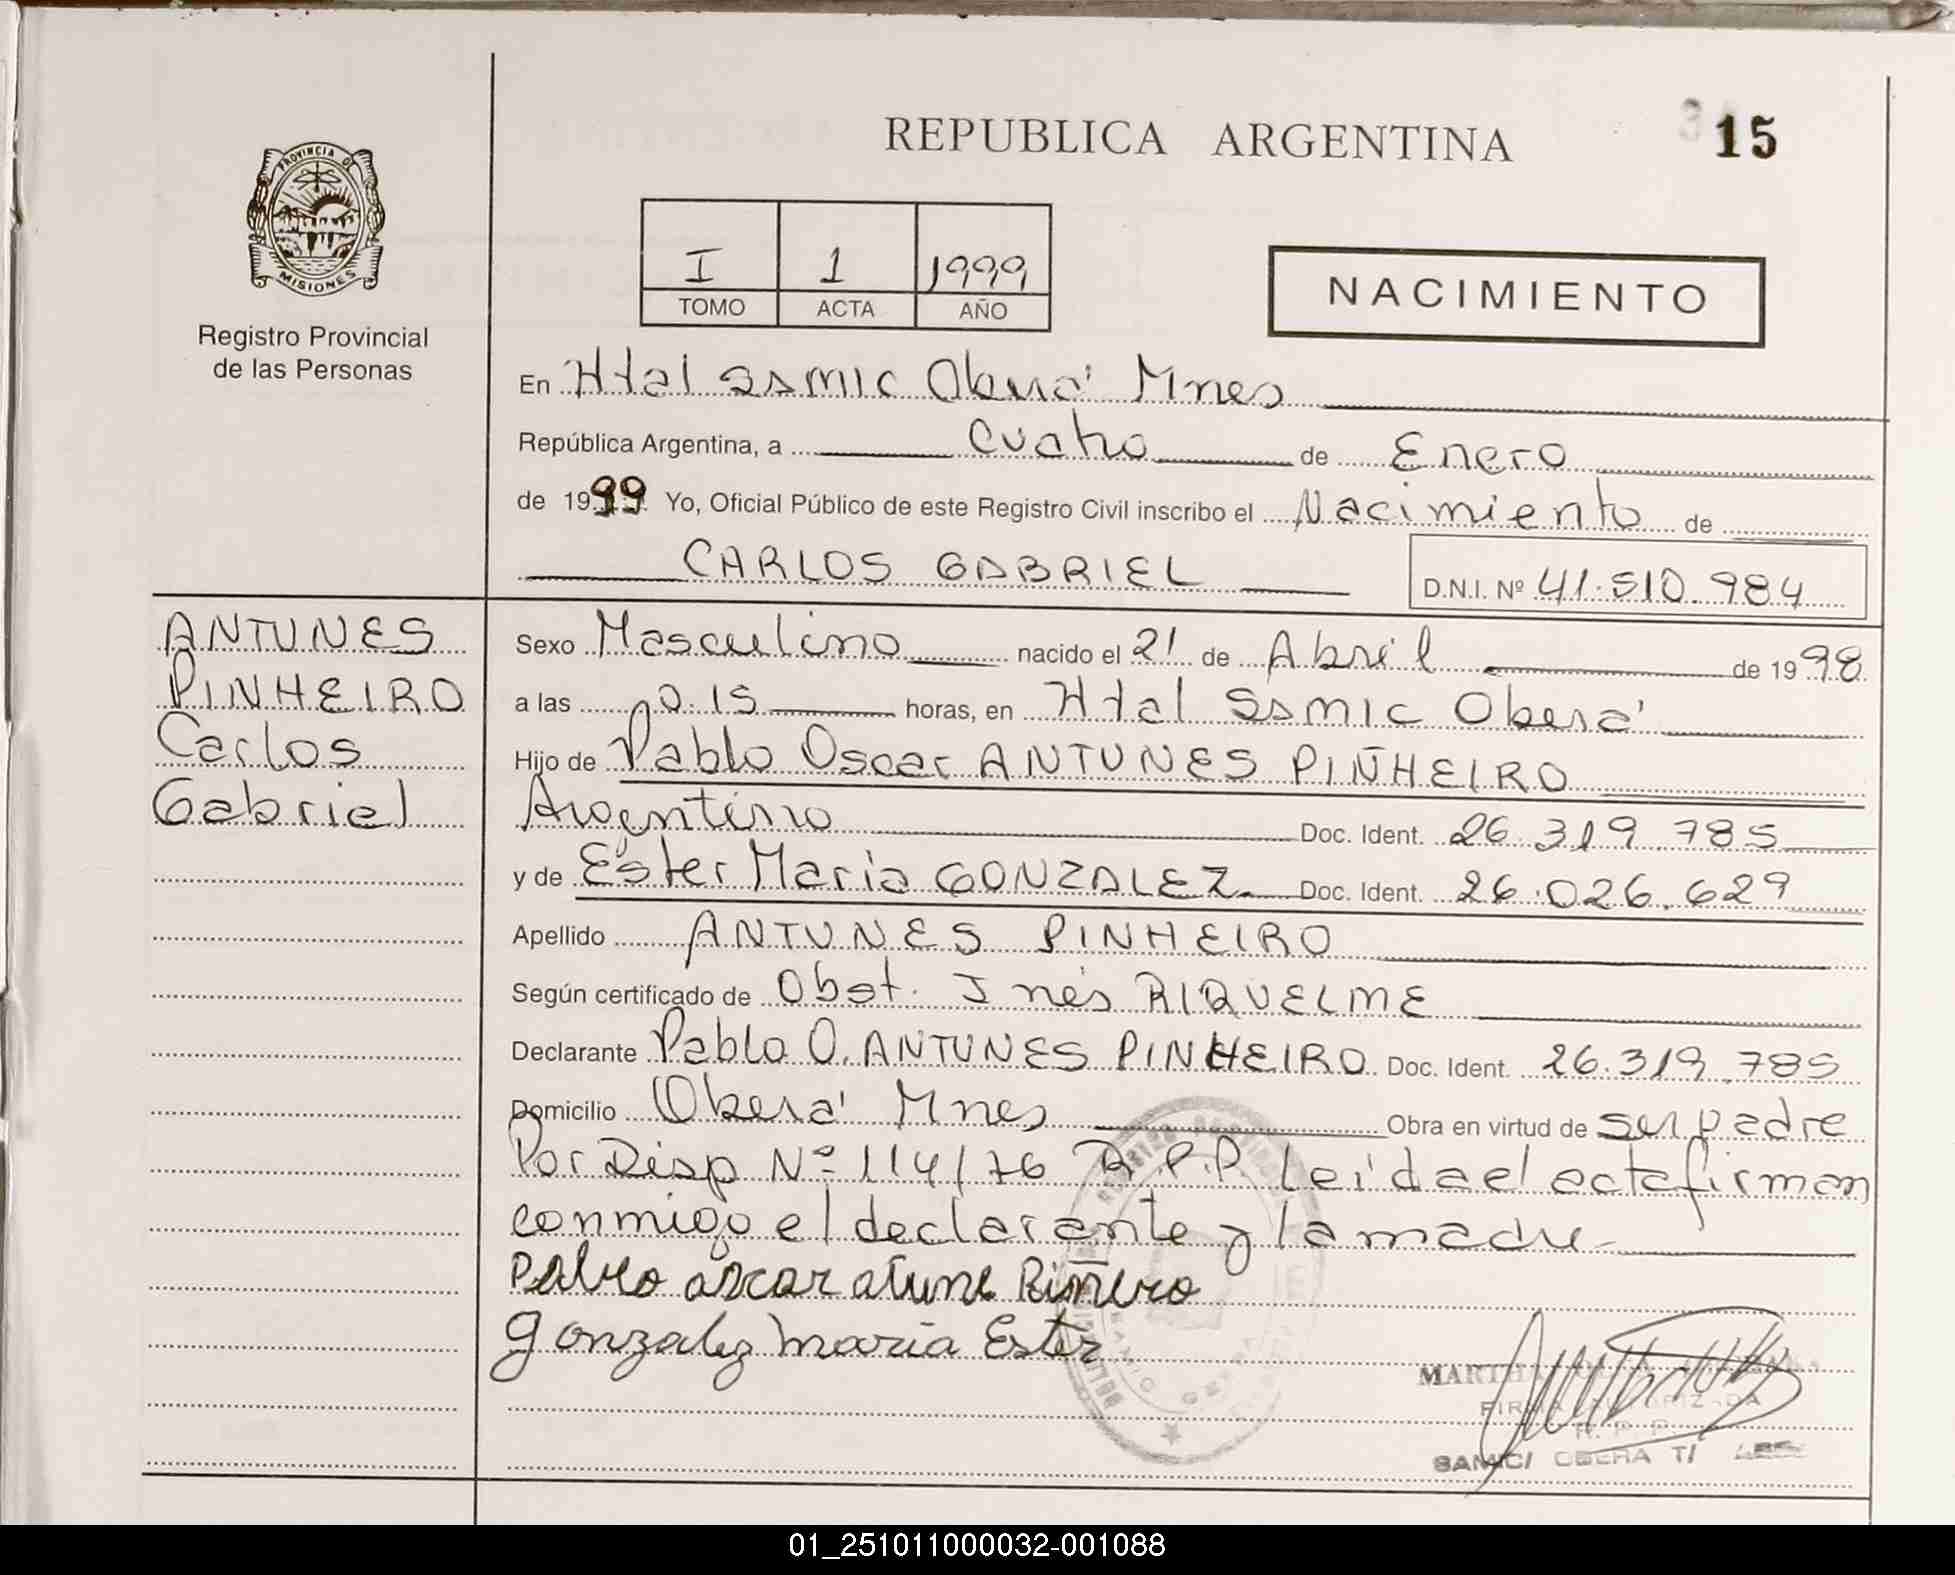 REPUBLICA ARGENTINA
15
PROVINCIA DE
MISIONES
Registro Provincial
de las Personas
I 1 1999
TOMO ACTA AÑO
NACIMIENTO
En Htal SSMIC Oberá Mnes
República Argentina, a Cuatro de Enero
de 1999 Yo, Oficial Público de este Registro Civil inscribo el Nacimiento de
CARLOS GABRIEL D.N.I. Nº 41.510.984
ANTUNES
PINHEIRO
Carlos
Gabriel
Sexo Masculino nacido el 21 de Abril de 1998
a las 0.15 horas, en Htal SSMIC Oberá
Hijo de Pablo Oscar ANTUNES PIÑHEIRO
Argentino Doc. Ident. 26.319.785
y de Ester Maria GONZALEZ Doc. Ident. 26.026.629
Apellido ANTUNES PINHEIRO
Según certificado de Obst. Inés RIQUELME
Declarante Pablo O. ANTUNES PINHEIRO Doc. Ident. 26.319.785
Domicilio Oberá Mnes Obra en virtud de ser padre
Por Disp Nº 114/76 R.P.P. leida el acta firman
conmigo el declarante y la madre
Pablo oscar atune Piñero
gonzalez maria Ester
MARTHA
R. P. P.
SAMIC/ OBERA
01_251011000032-001088